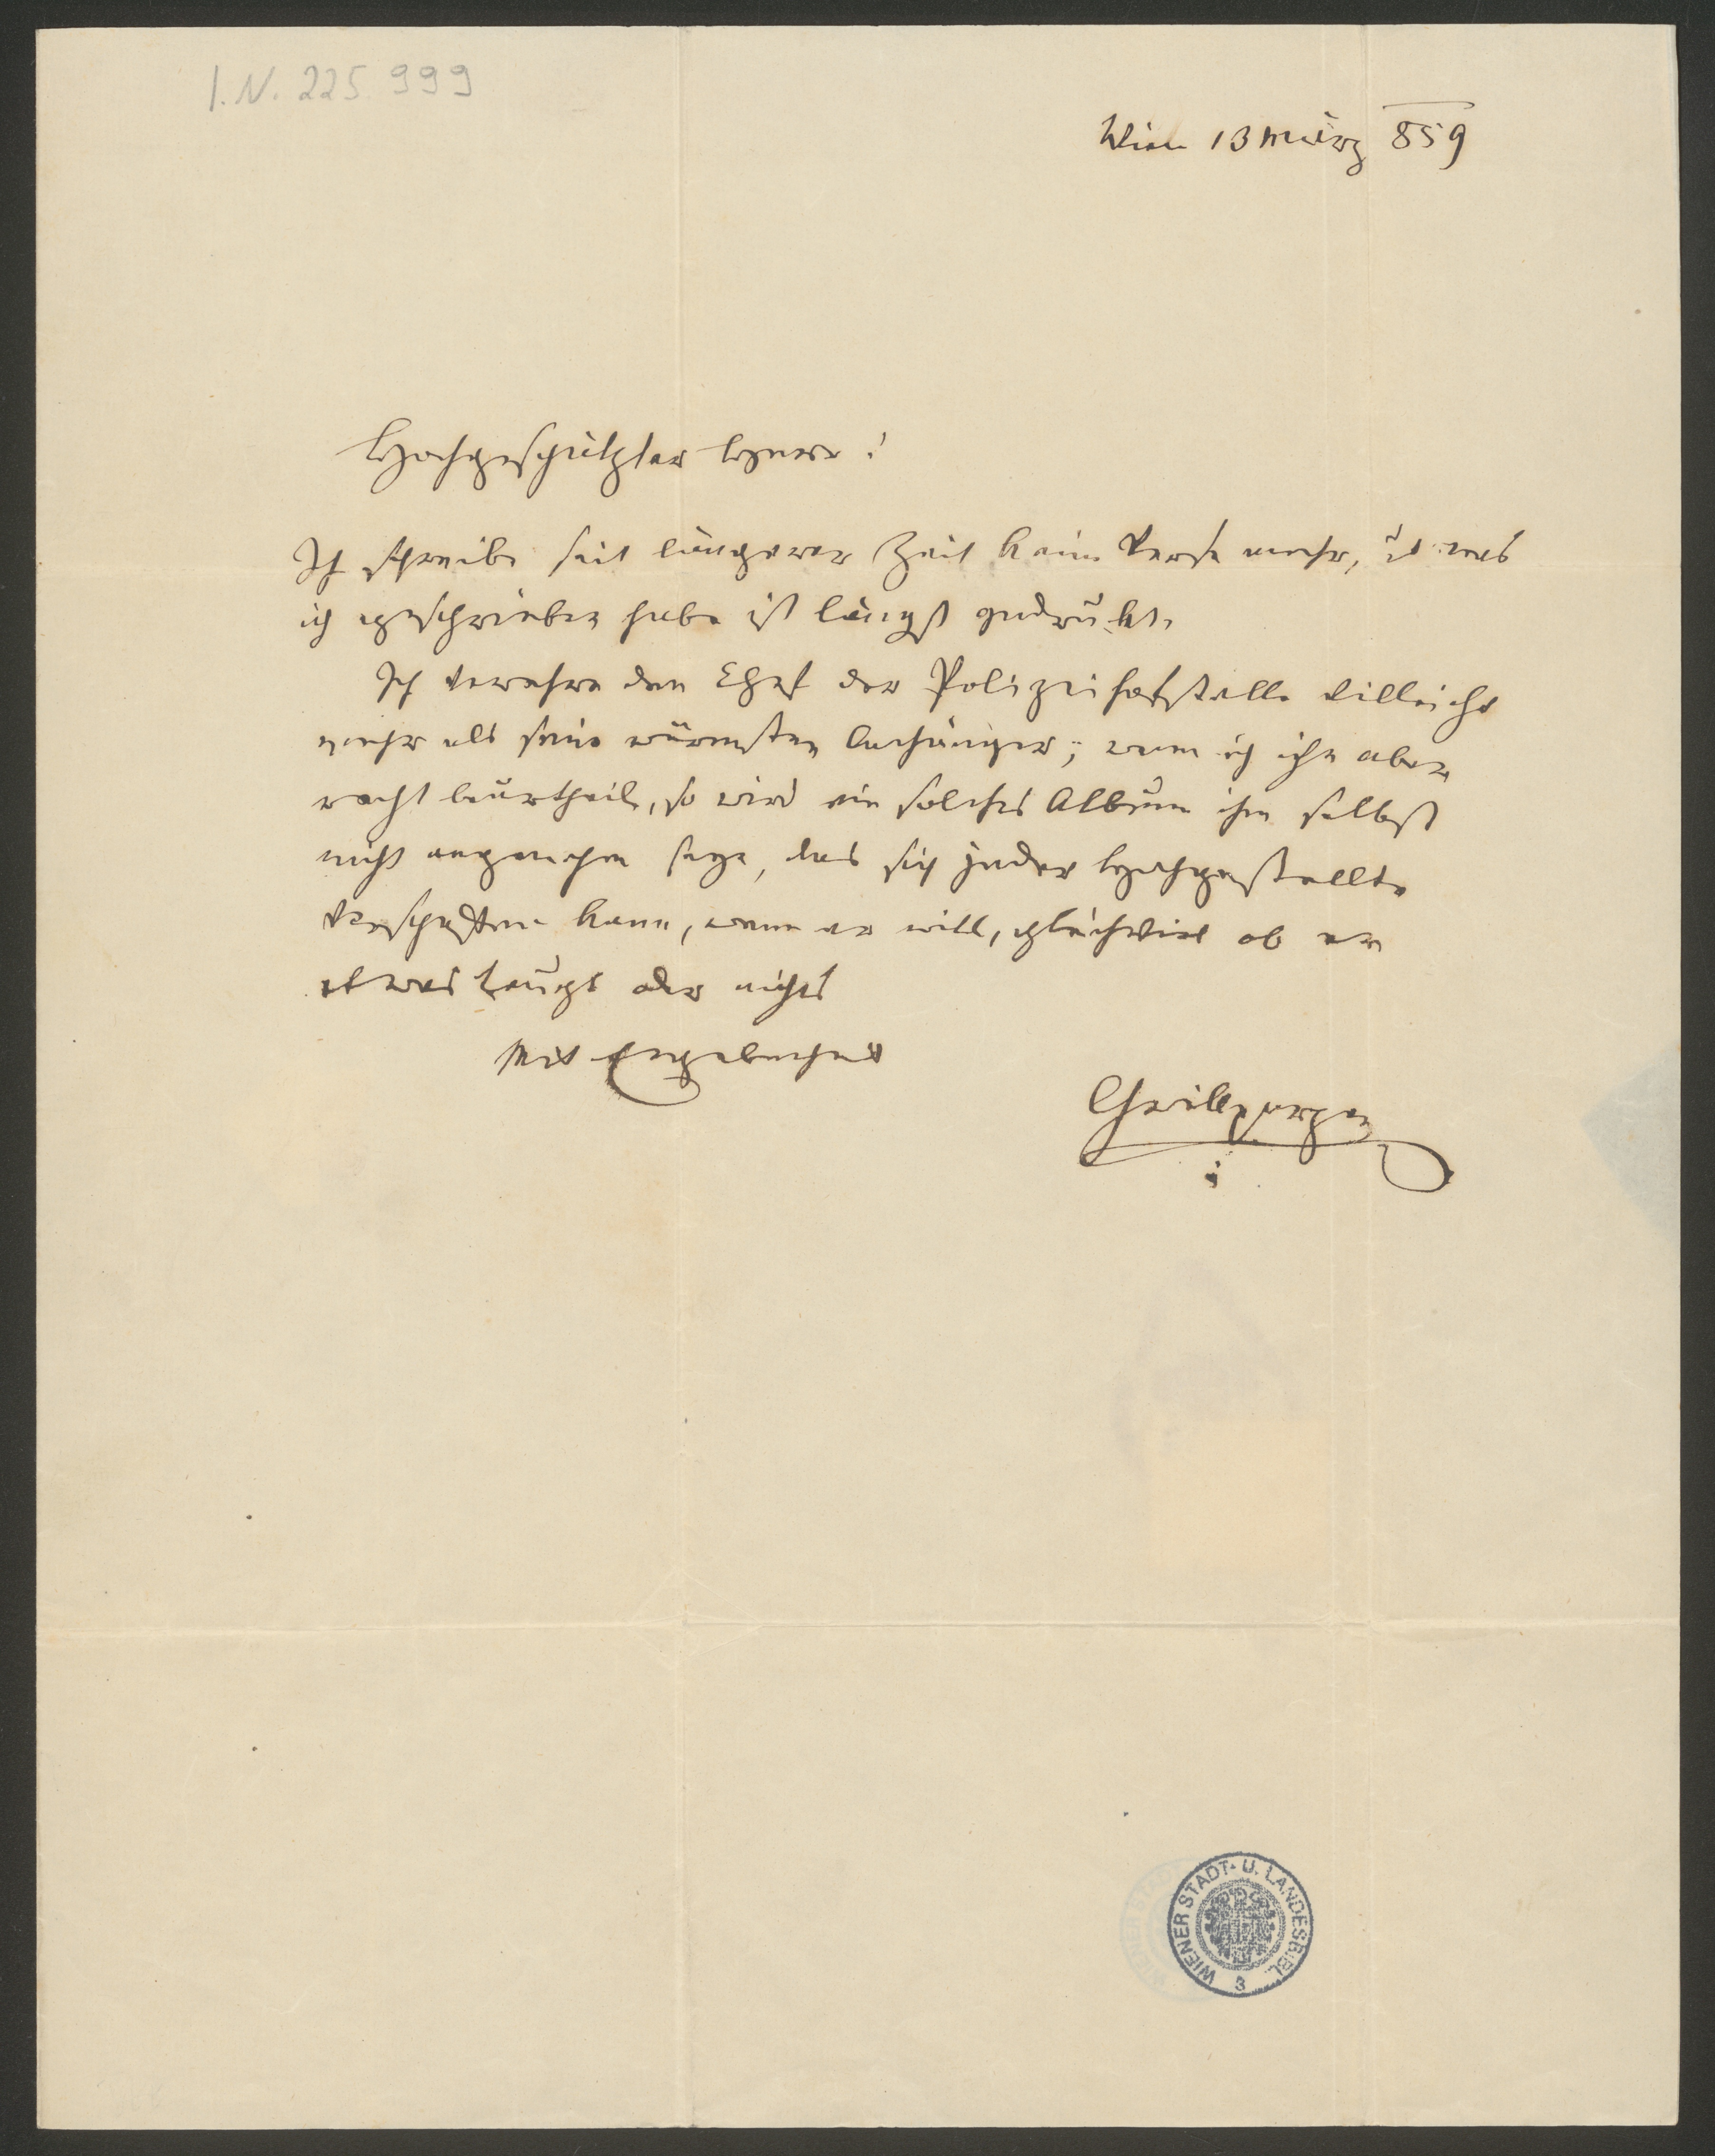 I.N. 225.999
Wien 13 März 859
Hochgeschätzter Herr!
Ich schreibe seit längerer Zeit keine Verse mehr, u was
ich geschrieben habe ist längst gedrukt.
Ich verehre den Chef der Polizeihofstelle villeicht
mehr als seine wärmsten Anhänger; wenn ich ihn aber
recht beurtheile, so wird ein solches Album ihm selbst
nicht angenehm seyn, das sich jeder Hochgestellte
verschaffen kann, wenn er will, gleichviel ob er
etwas taugt oder nichts
Mit Ergebenheit
Grillparzer
WIENER STADT- U. LANDESBIBL.
3